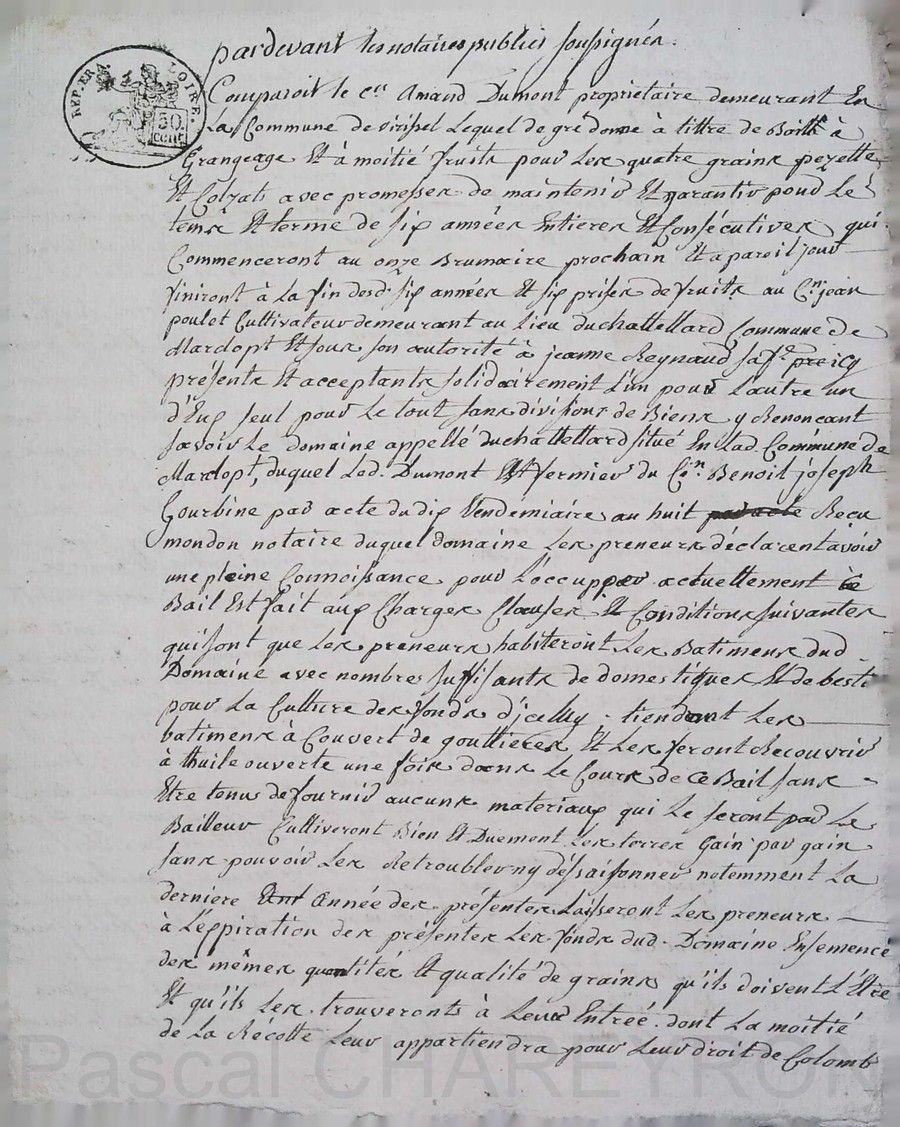 pardevant les notaires publics soussignés.
REP. FRA.
LOIRE.
50
CENT
Comparoit le Cen Amand Dumont propriétaire demeurant En
La Commune de Lequel de gré donne à tittre de Bail à
Grangeage Et à moitié fruits pour Les quatre grains pezette
Et Colzats avec promesses de maintenir Et garantir pour Le
tems Et terme de six années Entieres Et Consécutives qui
Commenceront au onze Brumaire prochain Et a pareil jour
finiront à La fin desd. six années Et six prises de fruits au Cn. jean
poulet Cultivateur demeurant au Lieu duchattellard Commune de
Mardopt Et sous son autorité à jeanne Reynaud sa fe. icy
présents Et acceptants solidairement L'un pour L'autre un
d'Eux seul pour Le tout sans division de Biens y Renonçant
savoir Le domaine appellé duchattellard situé En Lad. Commune de
Mardopt, duquel Led. Dumont Est fermier du Cn. Benoit joseph
Gourbine par acte dudix Vendemiaire an huit par acte Recu
mondon notaire duquel domaine Les preneurs déclarent avoir
une pleine Connoissance pour L'occupper actuellement Ce
Bail Est fait aux Charges Clauses Et Conditions suivantes
qui sont que Les preneurs habiteront Les Batimens dud
Domaine avec nombres suffisants de domestiques Et de besti
pour La Culture des fonds d'jcelluy ; tiendront Les
batimens à Couvert de gouttieres Et Les feront Recouvrir
à thuile ouverte une fois dans Le Cours de Ce Bail sans
Etre tenus de fournir aucuns materiaux qui Le seront par Le
Bailleur Cultiveront Bien Et Duement Les terres Gain par gain
sans pouvoir Les Retroubler ny déssaisonner notemment La
derniere Année des présentes Laisseront Les preneurs
à L'éxpiration des présentes Les fonds dud. Domaine Ensemencé
des mêmes quantités Et qualité de grains qu'ils doivent L'Etre
Et qu'ils Les trouveront à Leur Entrée dont La moitié
de La Recolte Leur appartiendra pour Leur droit de Colomb
Pascal CHAREYRON